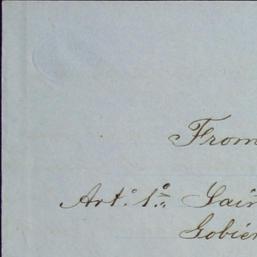 From
Art. 1º
Gobier